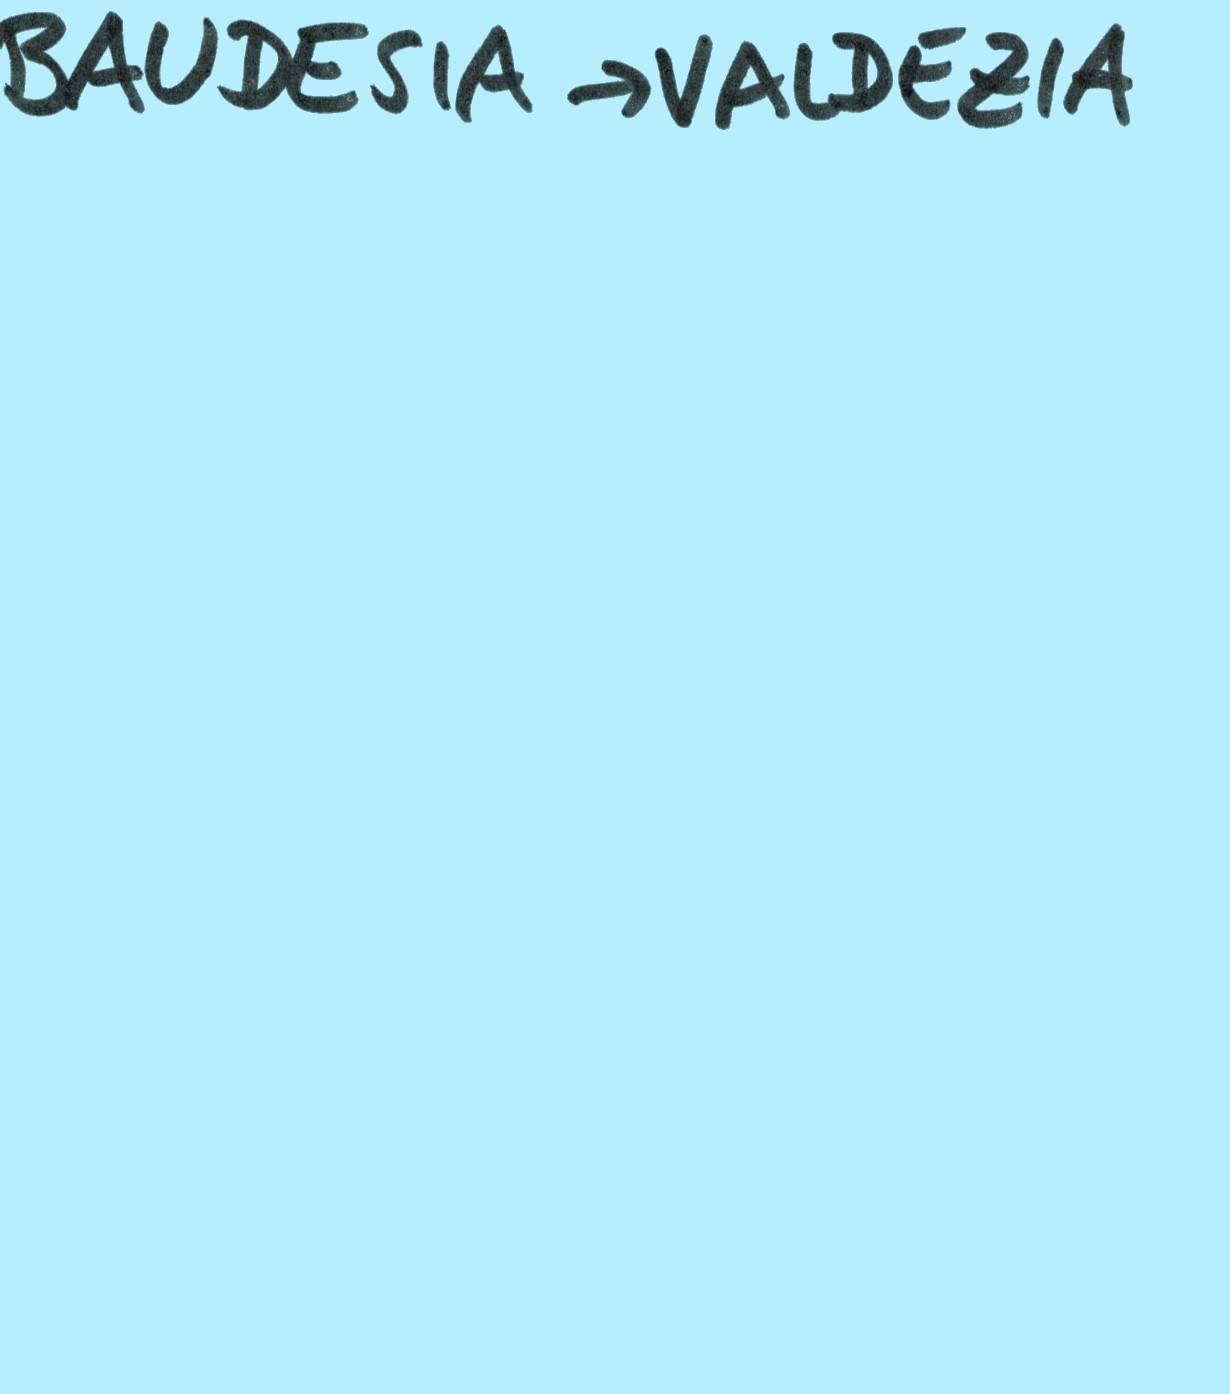 BAUDESIA → VALDEZIA